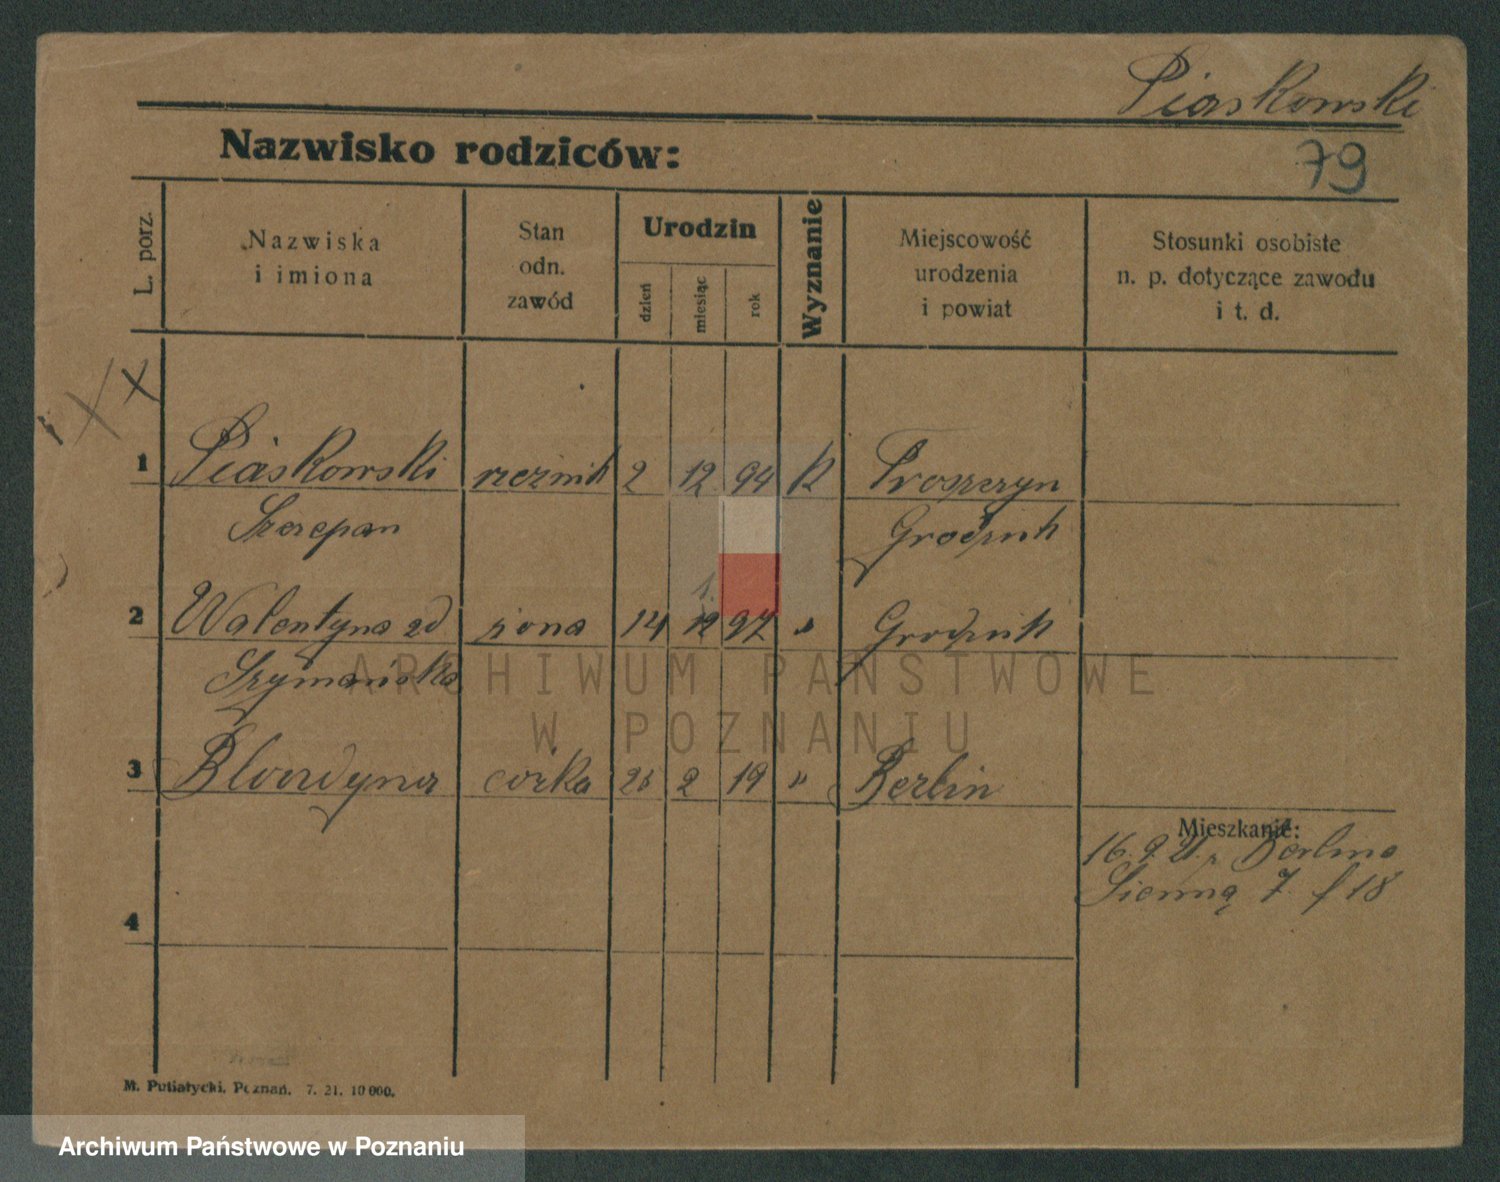 Piaskowski
Nazwisko rodziców:
79
L. porz.
Nazwiska
i imiona
Stan
odn.
zawód
Urodzin
dzień
miesiąc
rok
Wyznanie
Miejscowość
urodzenia
i powiat
Stosunki osobiste
n. p. dotyczące zawodu
i t. d.
1 Piaskowski rzeźnik 2 12 94 K
Szczepan Grodzisk
1.
2 Walentyna zd żona 14 12 97 " Grodzisk
Szymańska
3 córka 2 19 " Berlin
Mieszkanie:
16.9.21. z Berlina
Sienna 7. f 18
4
M. Putiatycki, Poznań. 7. 21. 10 000.
ARCHIWUM PAŃSTWOWE
W POZNANIU
Archiwum Państwowe w Poznaniu